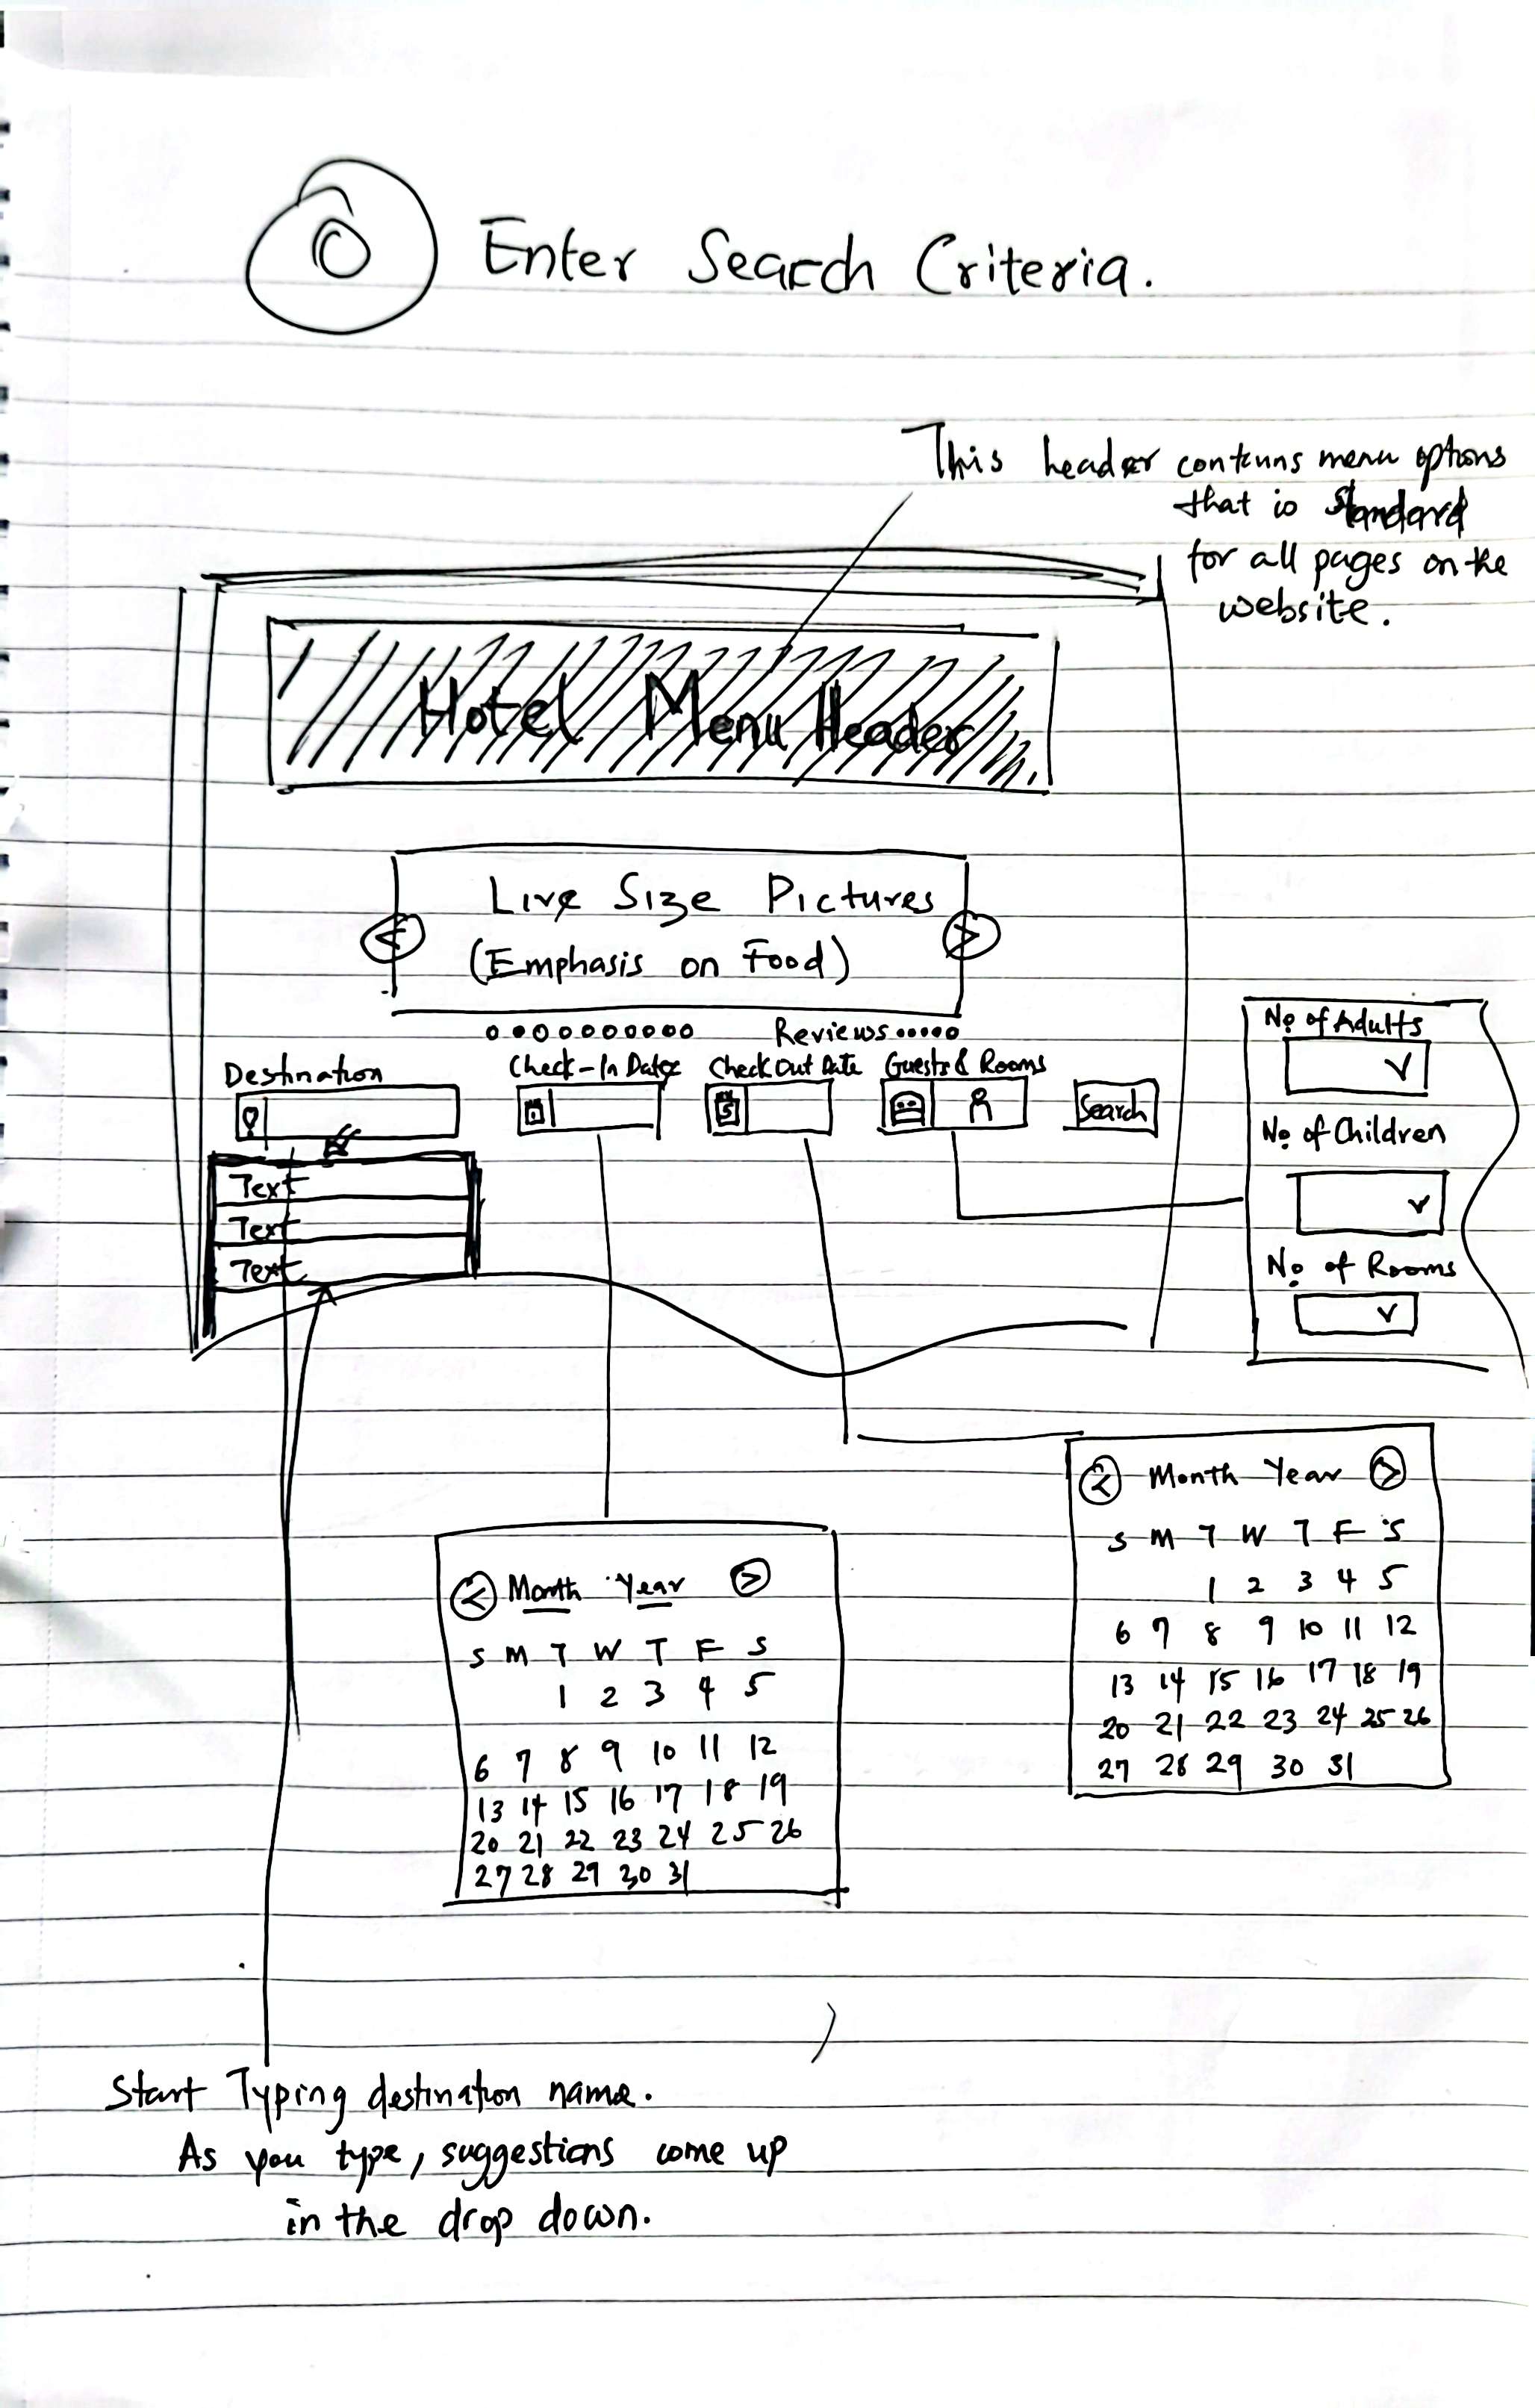 0 Enter Search Criteria.
This header contains menu options
that is standard
for all pages on the
website.
Hotel Menu Header
Live Size Pictures
(Emphasis on Food)
< >
Reviews
Destination
Check-In Date
Check Out Date
Guests & Rooms
Search
Text
Text
Text
No of Adults
No of Children
No of Rooms
< Month Year >
S M T W T F S
1 2 3 4 5
6 7 8 9 10 11 12
13 14 15 16 17 18 19
20 21 22 23 24 25 26
27 28 29 30 31
< Month Year >
S M T W T F S
1 2 3 4 5
6 7 8 9 10 11 12
13 14 15 16 17 18 19
20 21 22 23 24 25 26
27 28 29 30 31
Start Typing destination name.
As you type, suggestions come up
in the drop down.